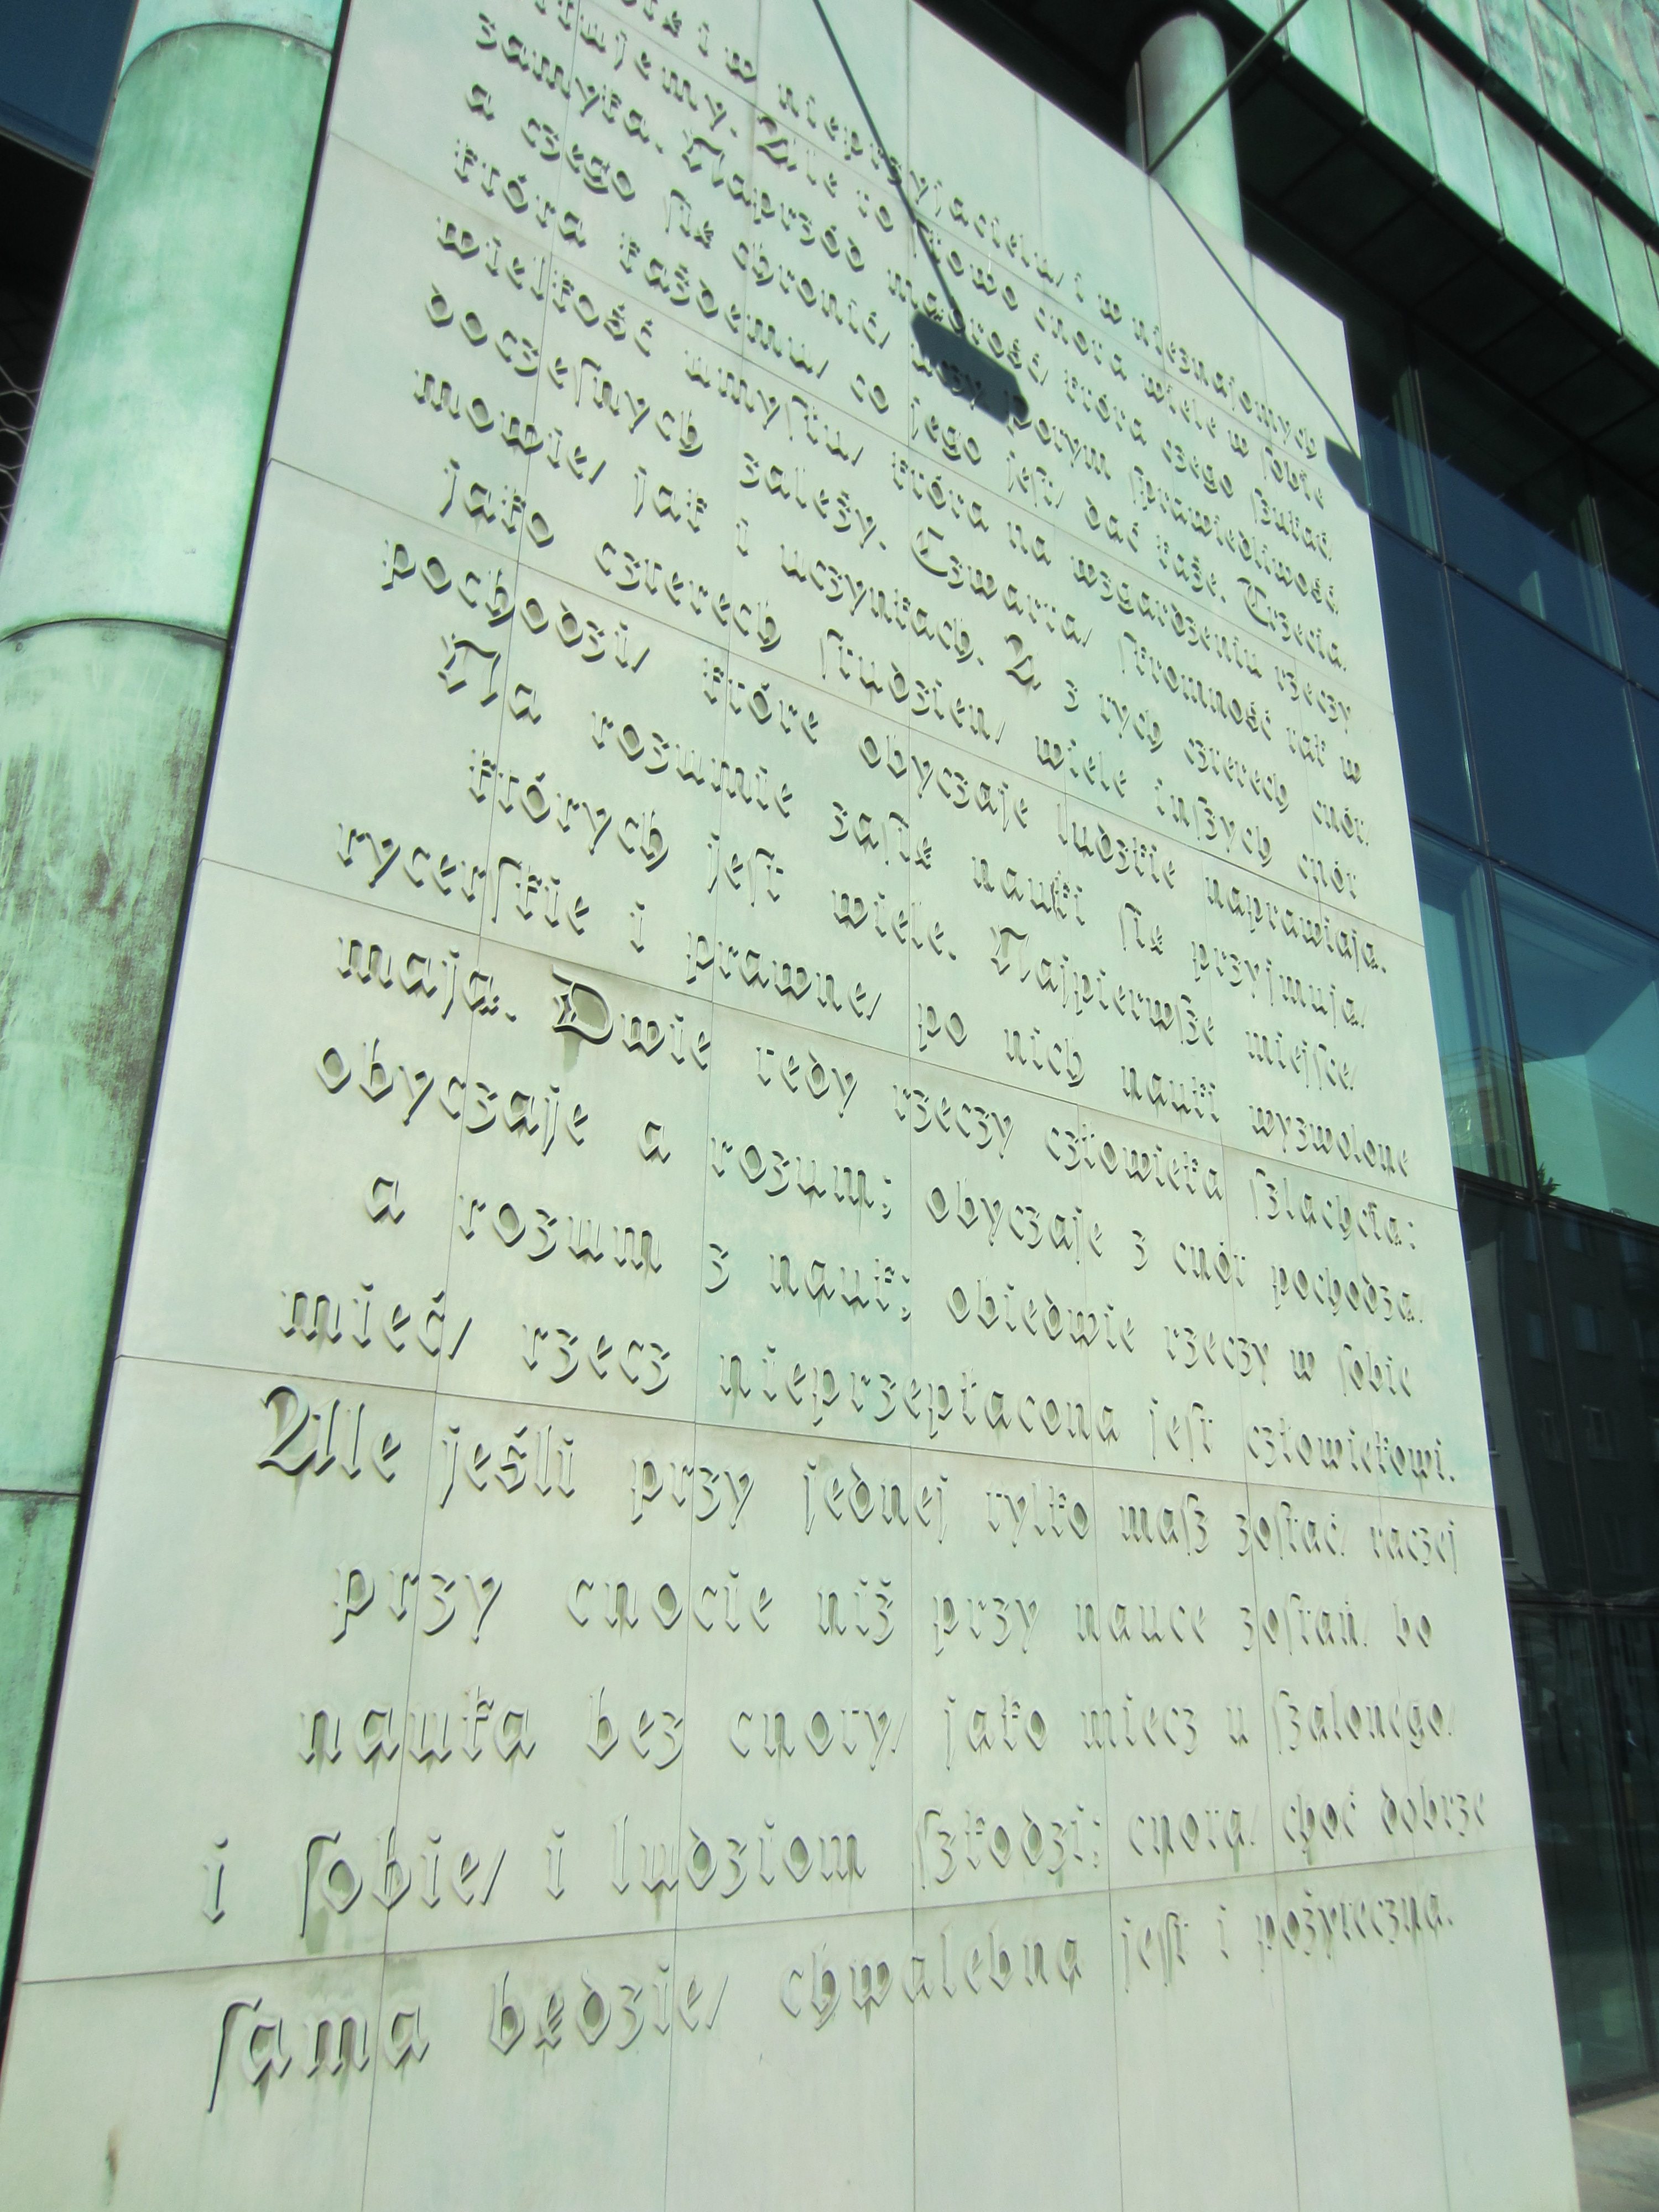 i w nieprzyjacielu/ i w nieznajomych
miłujemy. Ale to słowo cnota wiele w sobie
zamyka. Naprzód mądrość/ która czego szukać/
a czego się chronić/ uczy. Potym sprawiedliwość/
która każdemu/ co jego jest/ dać każe. Trzecia/
wielkość umysłu/ która na wzgardzeniu rzeczy
doczesnych zależy. Czwarta/ skromność tak w
mowie/ jak i uczynkach. A z tych czterech cnót/
jako czterech studzien/ wiele inszych cnót
pochodzi/ które obyczaje ludzkie naprawiają.
Na rozumie zasię nauki się przyjmują/
których jest wiele. Najpierwsze miejsce/
rycerskie i prawne/ po nich nauki wyzwolone
mają. Dwie tedy rzeczy człowieka szlachcią:
obyczaje a rozum; obyczaje z cnót pochodzą/
a rozum z nauk; obiedwie rzeczy w sobie
mieć/ rzecz nieprzepłacona jest człowiekowi.
Ale jeśli przy jednej tylko masz zostać/ raczej
przy cnocie niż przy nauce zostań/ bo
nauka bez cnoty/ jako miecz u szalonego/
i sobie/ i ludziom szkodzi; cnota/ choć dobrze
sama będzie/ chwalebna jest i pożyteczna.